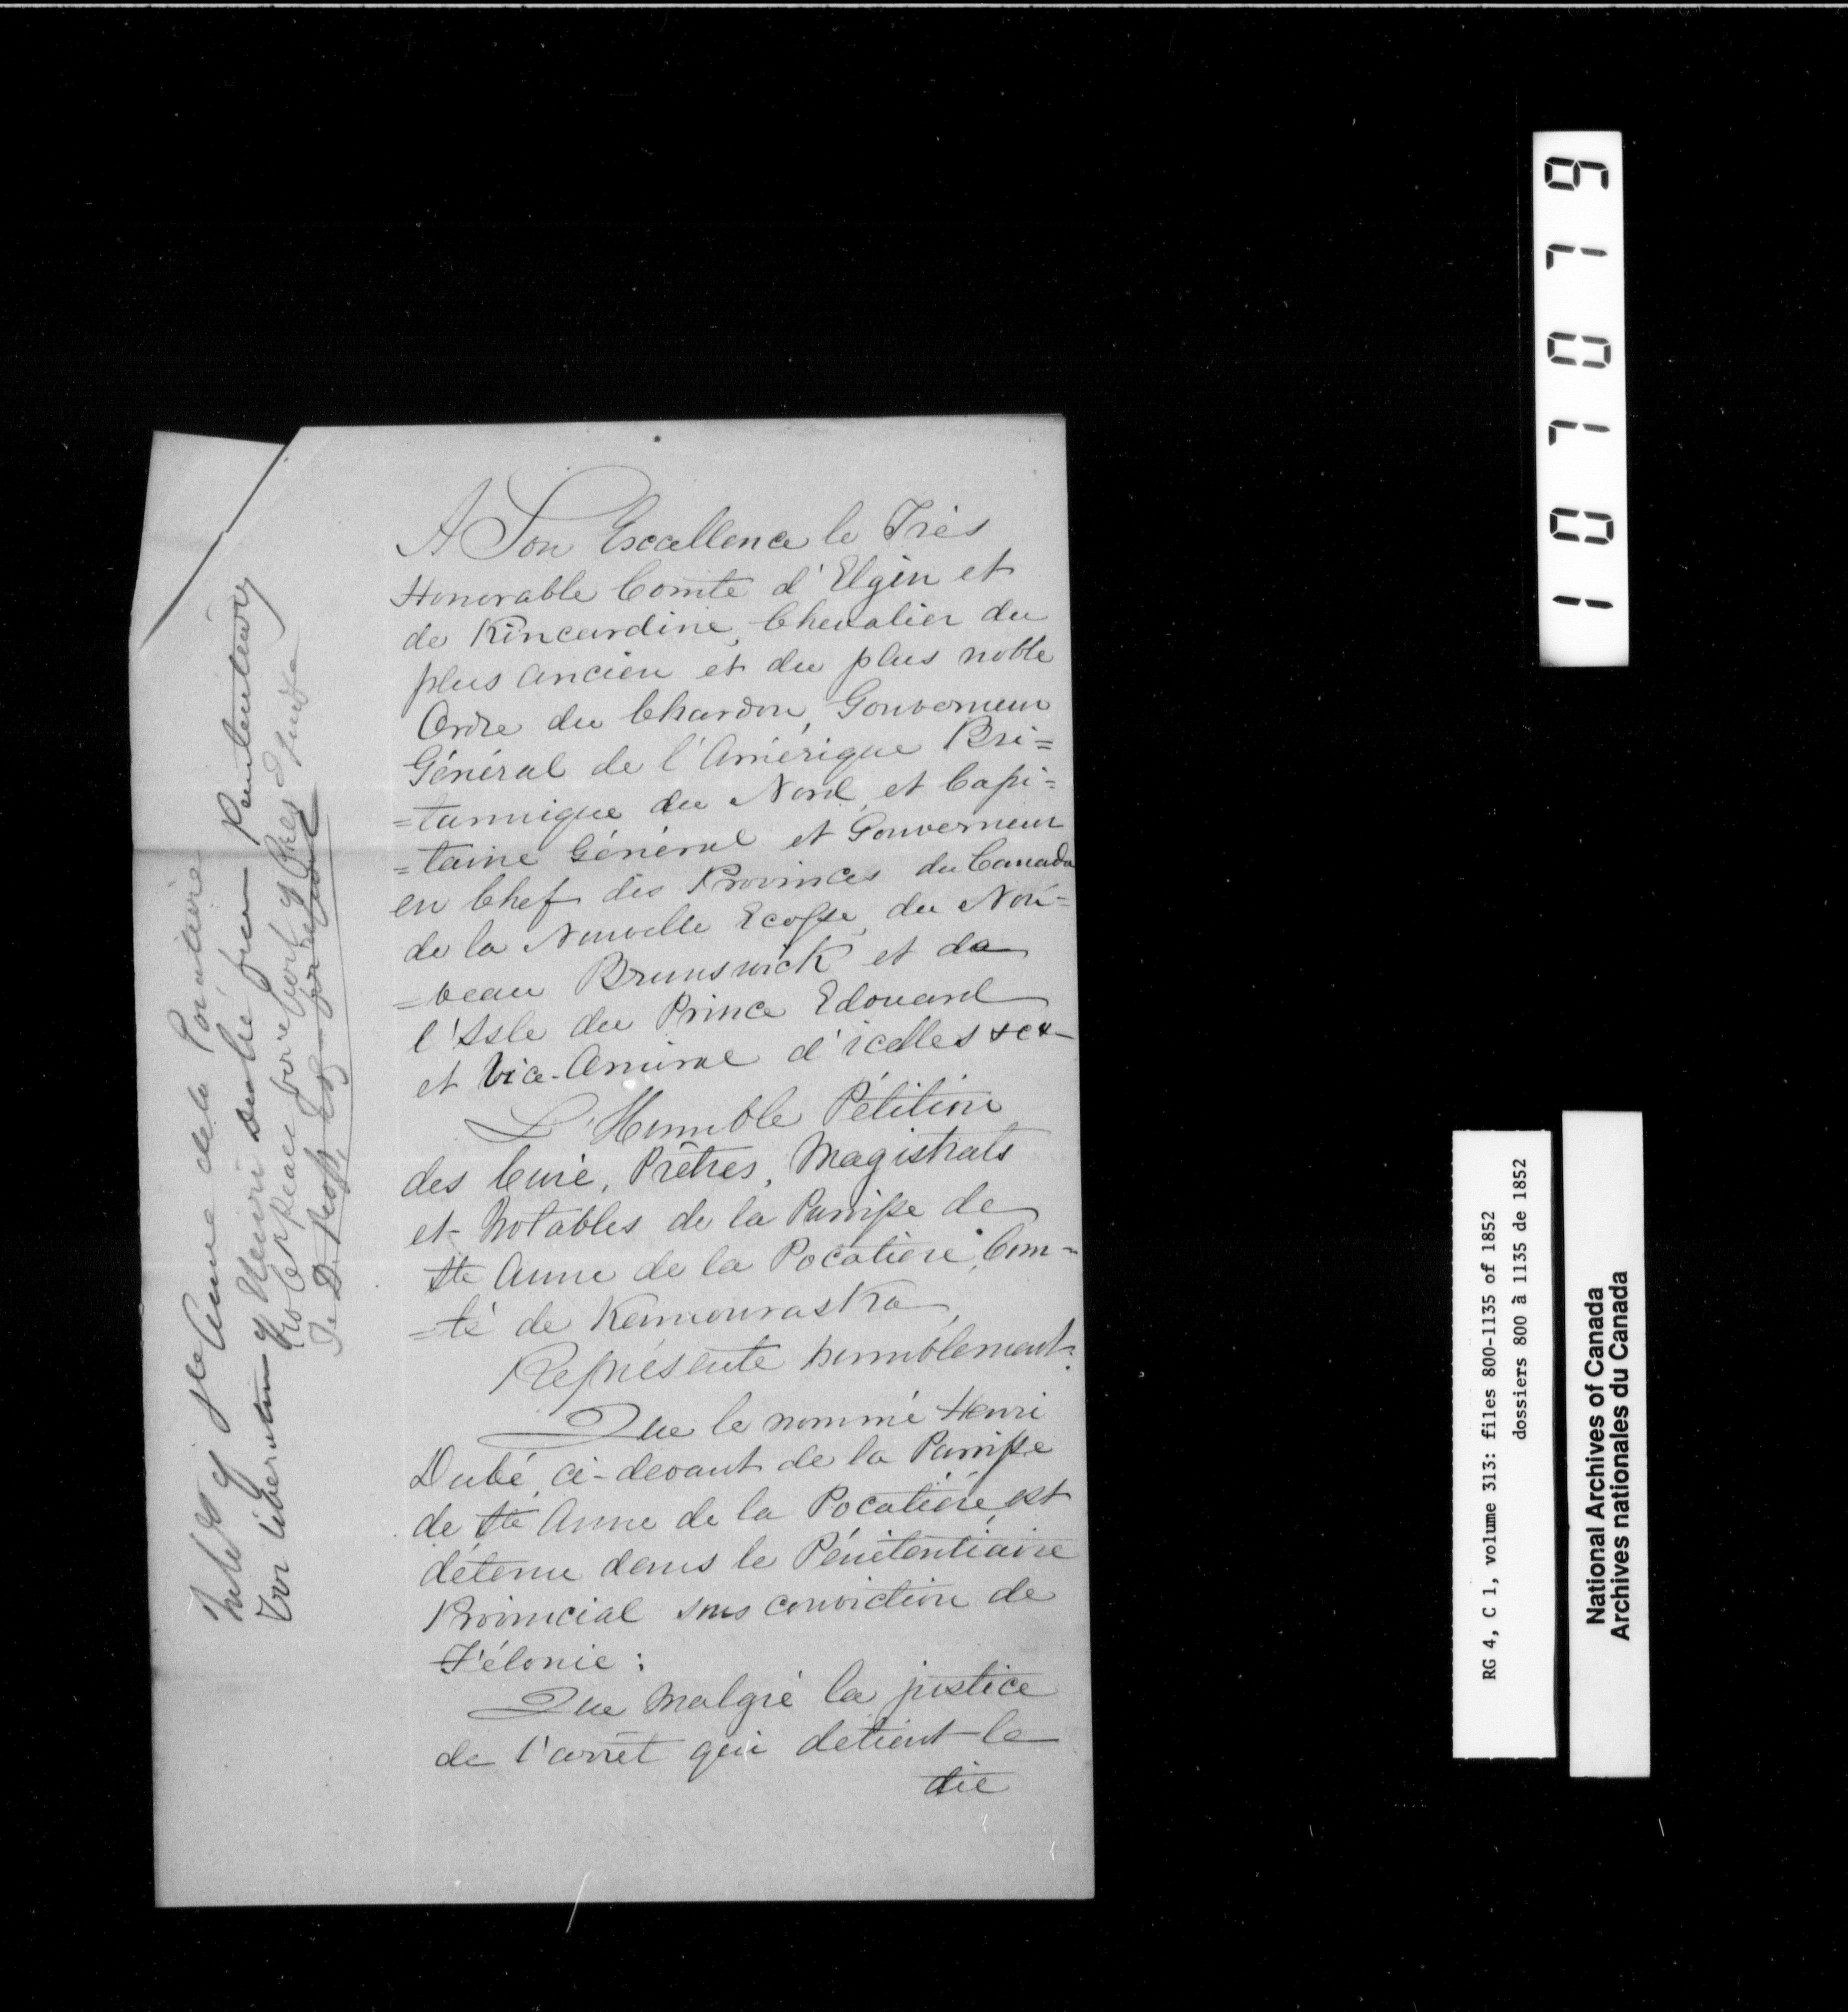 A Son Excellence le Très
Honorable Comte d'Elgin et
de Kincardine, Chevalier du
plus ancien et du plus noble
Ordre du Chardon, Gouverneur
Général de l'Amérique Bri=
=tannique du Nord, et Capi=
=taine Général et Gouverneur
en Chef des Provinces du Canada
de la Nouvelle Ecosse, du Nou=
=veau Brunswick et de
l'Isle du Prince Edouard
et Vice-Amiral d'icelles &c &c
L'Humble Pétition
des Curé, Prêtres, Magistrats
et Notables de la Paroisse de
Ste Anne de la Pocatière, Com=
=té de Kamouraska,
Représente humblement:
Que le nommé Henri
Dubé, ci-devant de la Paroisse
de Ste Anne de la Pocatière, est
détenu dans le Pénitentiaire
Provincial sous conviction de
Félonie:
Que malgré la justice
de l'arrêt qui detient le
dit
of Ste Anne de la Pocatière
for liberation of Henri Dubé from Penitentiary
of Chief Justice
107079
RG 4, C 1, volume 313: files 800-1135 of 1852
dossiers 800 à 1135 de 1852
National Archives of Canada
Archives nationales du Canada